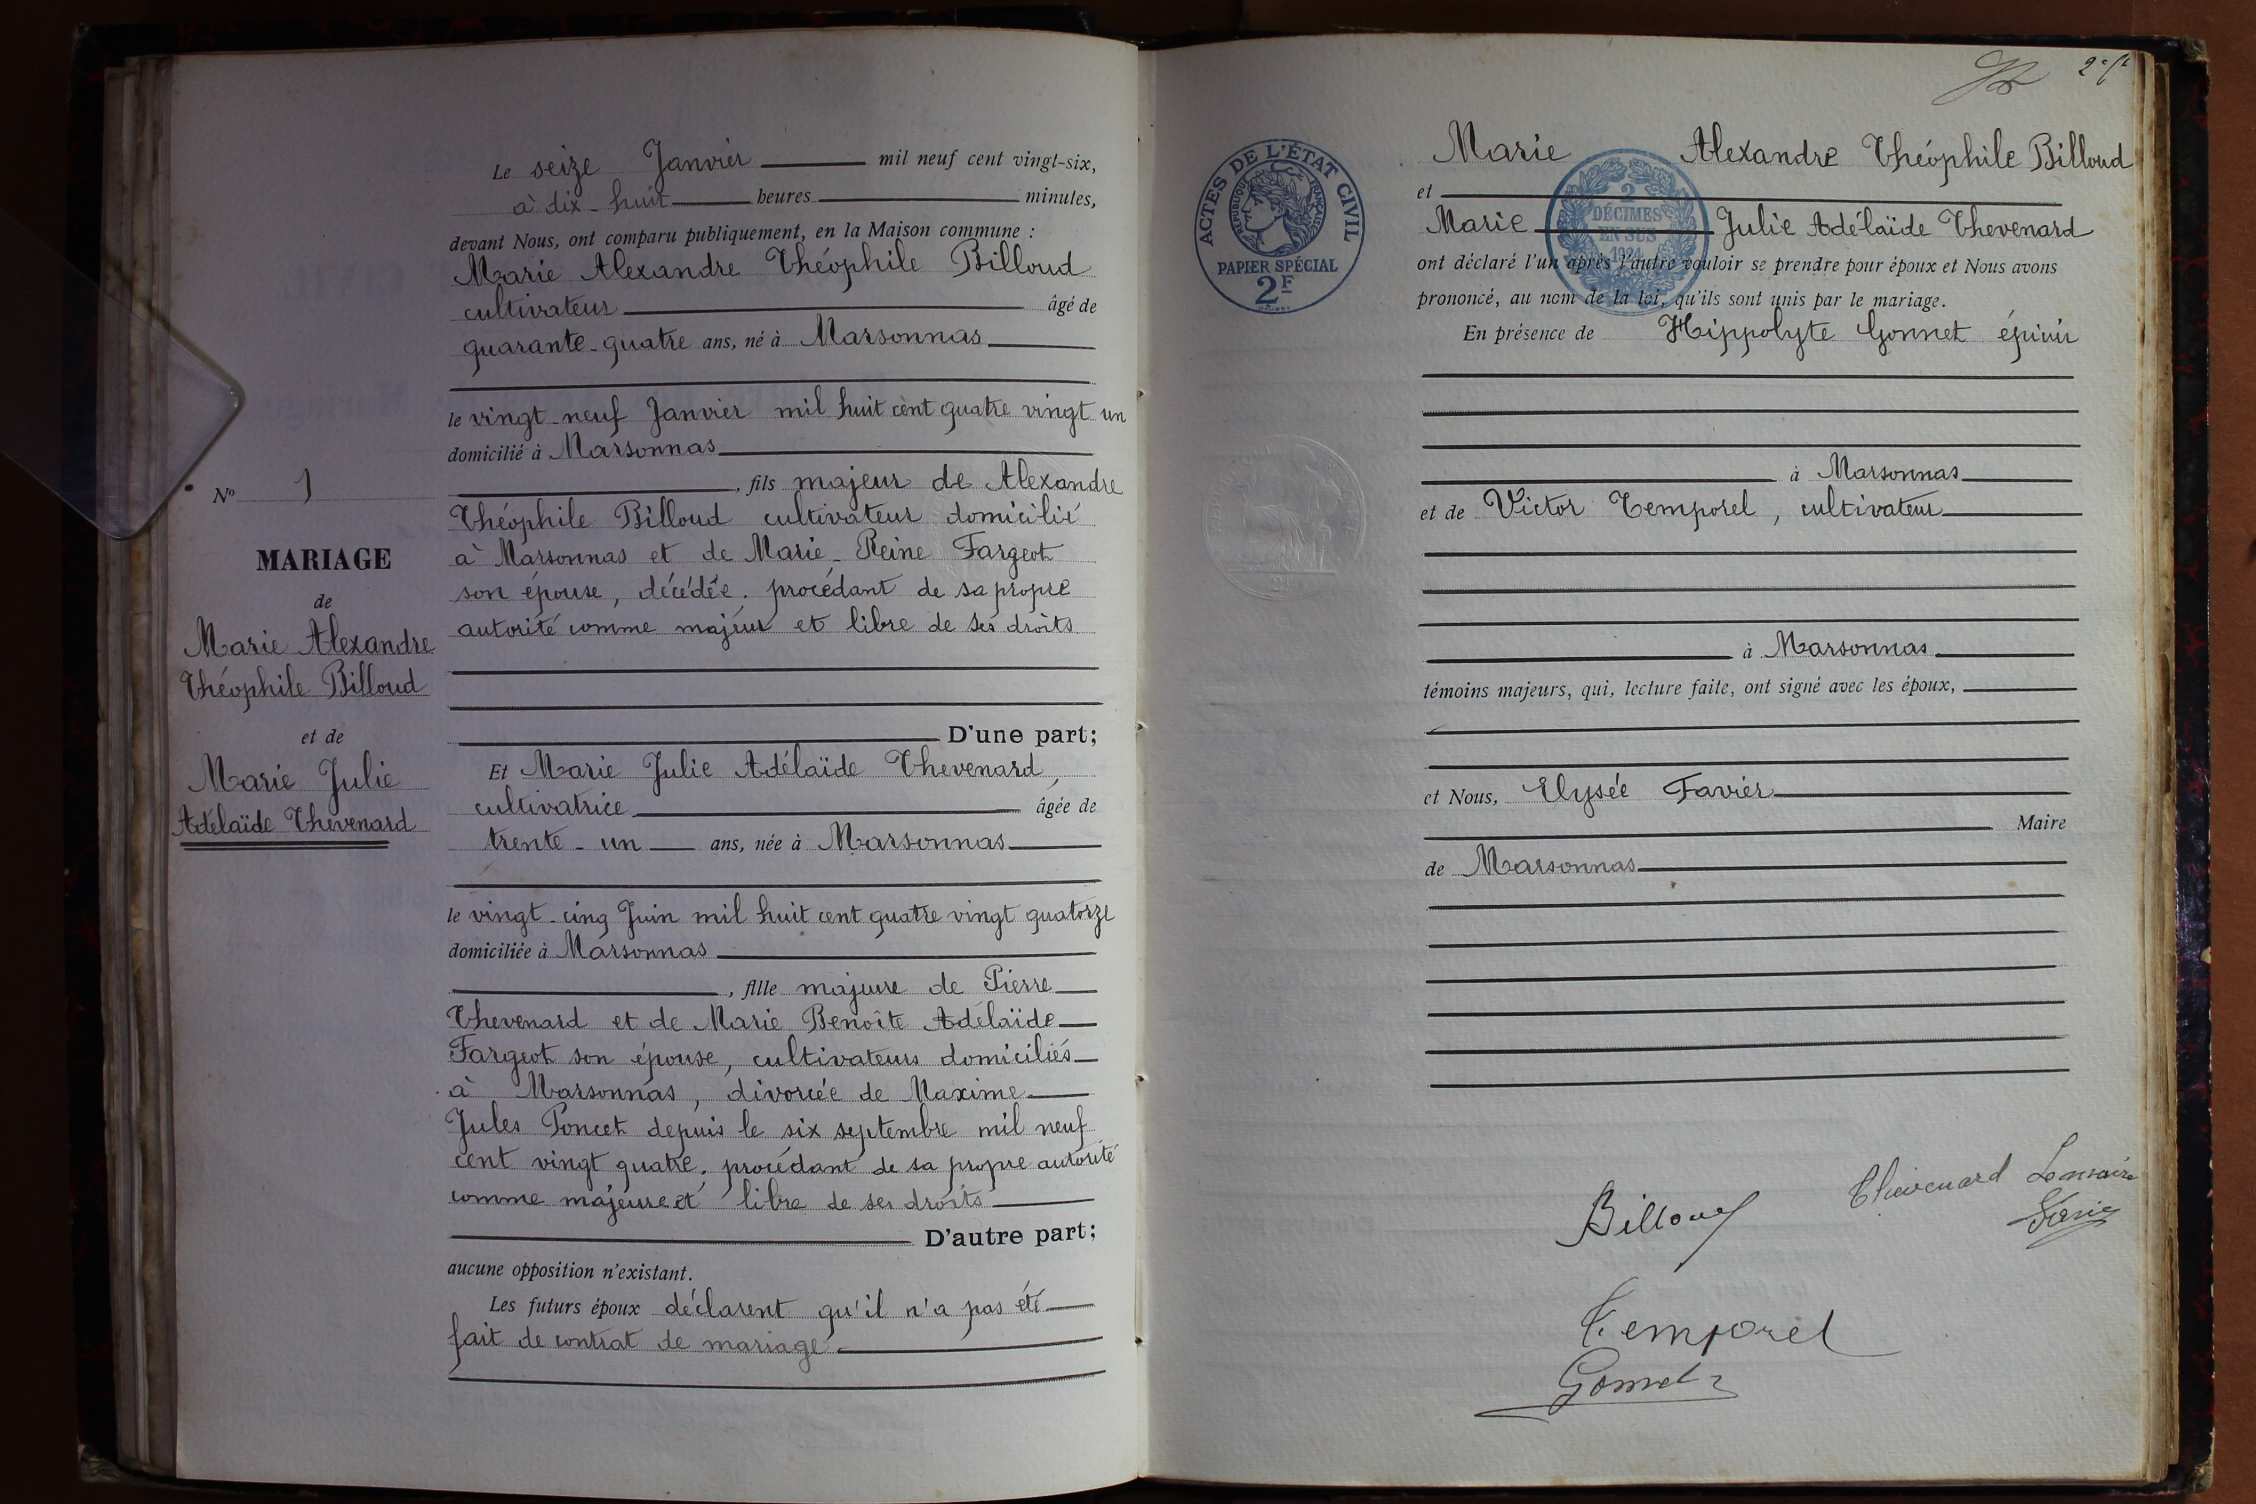 Le seize Janvier mil neuf cent vingt-six,
à dix-huit heures minutes,
devant Nous, ont comparu publiquement, en la Maison commune :
Marie Alexandre Théophile Billoud
cultivateur âgé de
quarante-quatre ans, né à Marsonnas
le vingt-neuf Janvier mil huit cent quatre vingt un
domicilié à Marsonnas
, fils majeur de Alexandre
Théophile Billoud cultivateur domicilié
à Marsonnas et de Marie-Reine Fargeot
son épouse, décédée. procédant de sa propre
autorité comme majeur et libre de ses droits
D'une part;
Et Marie Julie Adélaïde Thevenard,
cultivatrice âgée de
trente-un ans, née à Marsonnas
le vingt-cinq Juin mil huit cent quatre vingt quatorze
domiciliée à Marsonnas
, fille majeure de Pierre
Thevenard et de Marie Benoîte Adélaïde
Fargeot son épouse, cultivateurs domiciliés
à Marsonnas, divorcée de Maxime
Jules Poncet depuis le six septembre mil neuf
cent vingt quatre. procédant de sa propre autorité
comme majeure et libre de ses droits
D'autre part;
aucune opposition n'existant.
Les futurs époux déclarent qu'il n'a pas été
fait de contrat de mariage
No 1
MARIAGE
de
Marie Alexandre
Théophile Billoud
et de
Marie Julie
Adélaïde Thevenard
ACTES DE L'ÉTAT CIVIL
RÉPUBLIQUE FRANÇAISE
PAPIER SPÉCIAL
2F
2
DÉCIMES
EN SUS
1924
Marie Alexandre Théophile Billoud
et
Marie Julie Adélaïde Thevenard
ont déclaré l'un après l'autre vouloir se prendre pour époux et Nous avons
prononcé, au nom de la loi, qu'ils sont unis par le mariage.
En présence de Hippolyte Gonnet épicier
à Marsonnas
et de Victor Temporel, cultivateur
à Marsonnas
témoins majeurs, qui, lecture faite, ont signé avec les époux,
et Nous, Elysée Favier
Maire
de Marsonnas
Billoud
Thévenard
Temporel
Gonnet